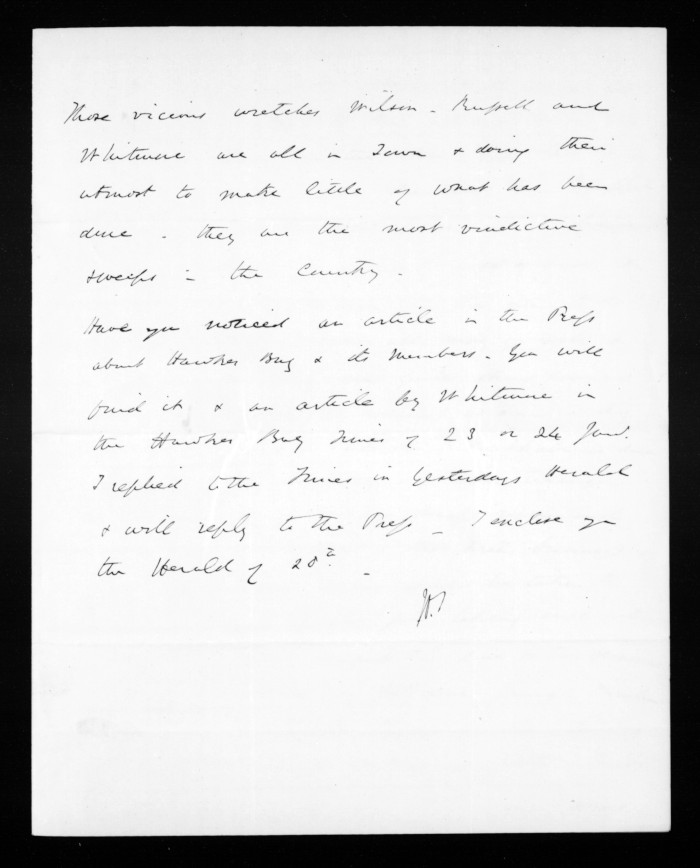 Those vicious wretches Wilson - Russell and
Whitmore are all in Town & doing their
utmost to make little of what has been
done - they are the most vindictive
sweeps in the Country -
Have you noticed an article in the Press
about Hawkes Bay & its Members - You will
find it & an article by Whitmore in
the Hawkes Bay Times of 23 or 24 Jany.
I replied to the Times in Yesterdays Herald
& will reply to the Press - I enclose you
the Herald of 28th. -